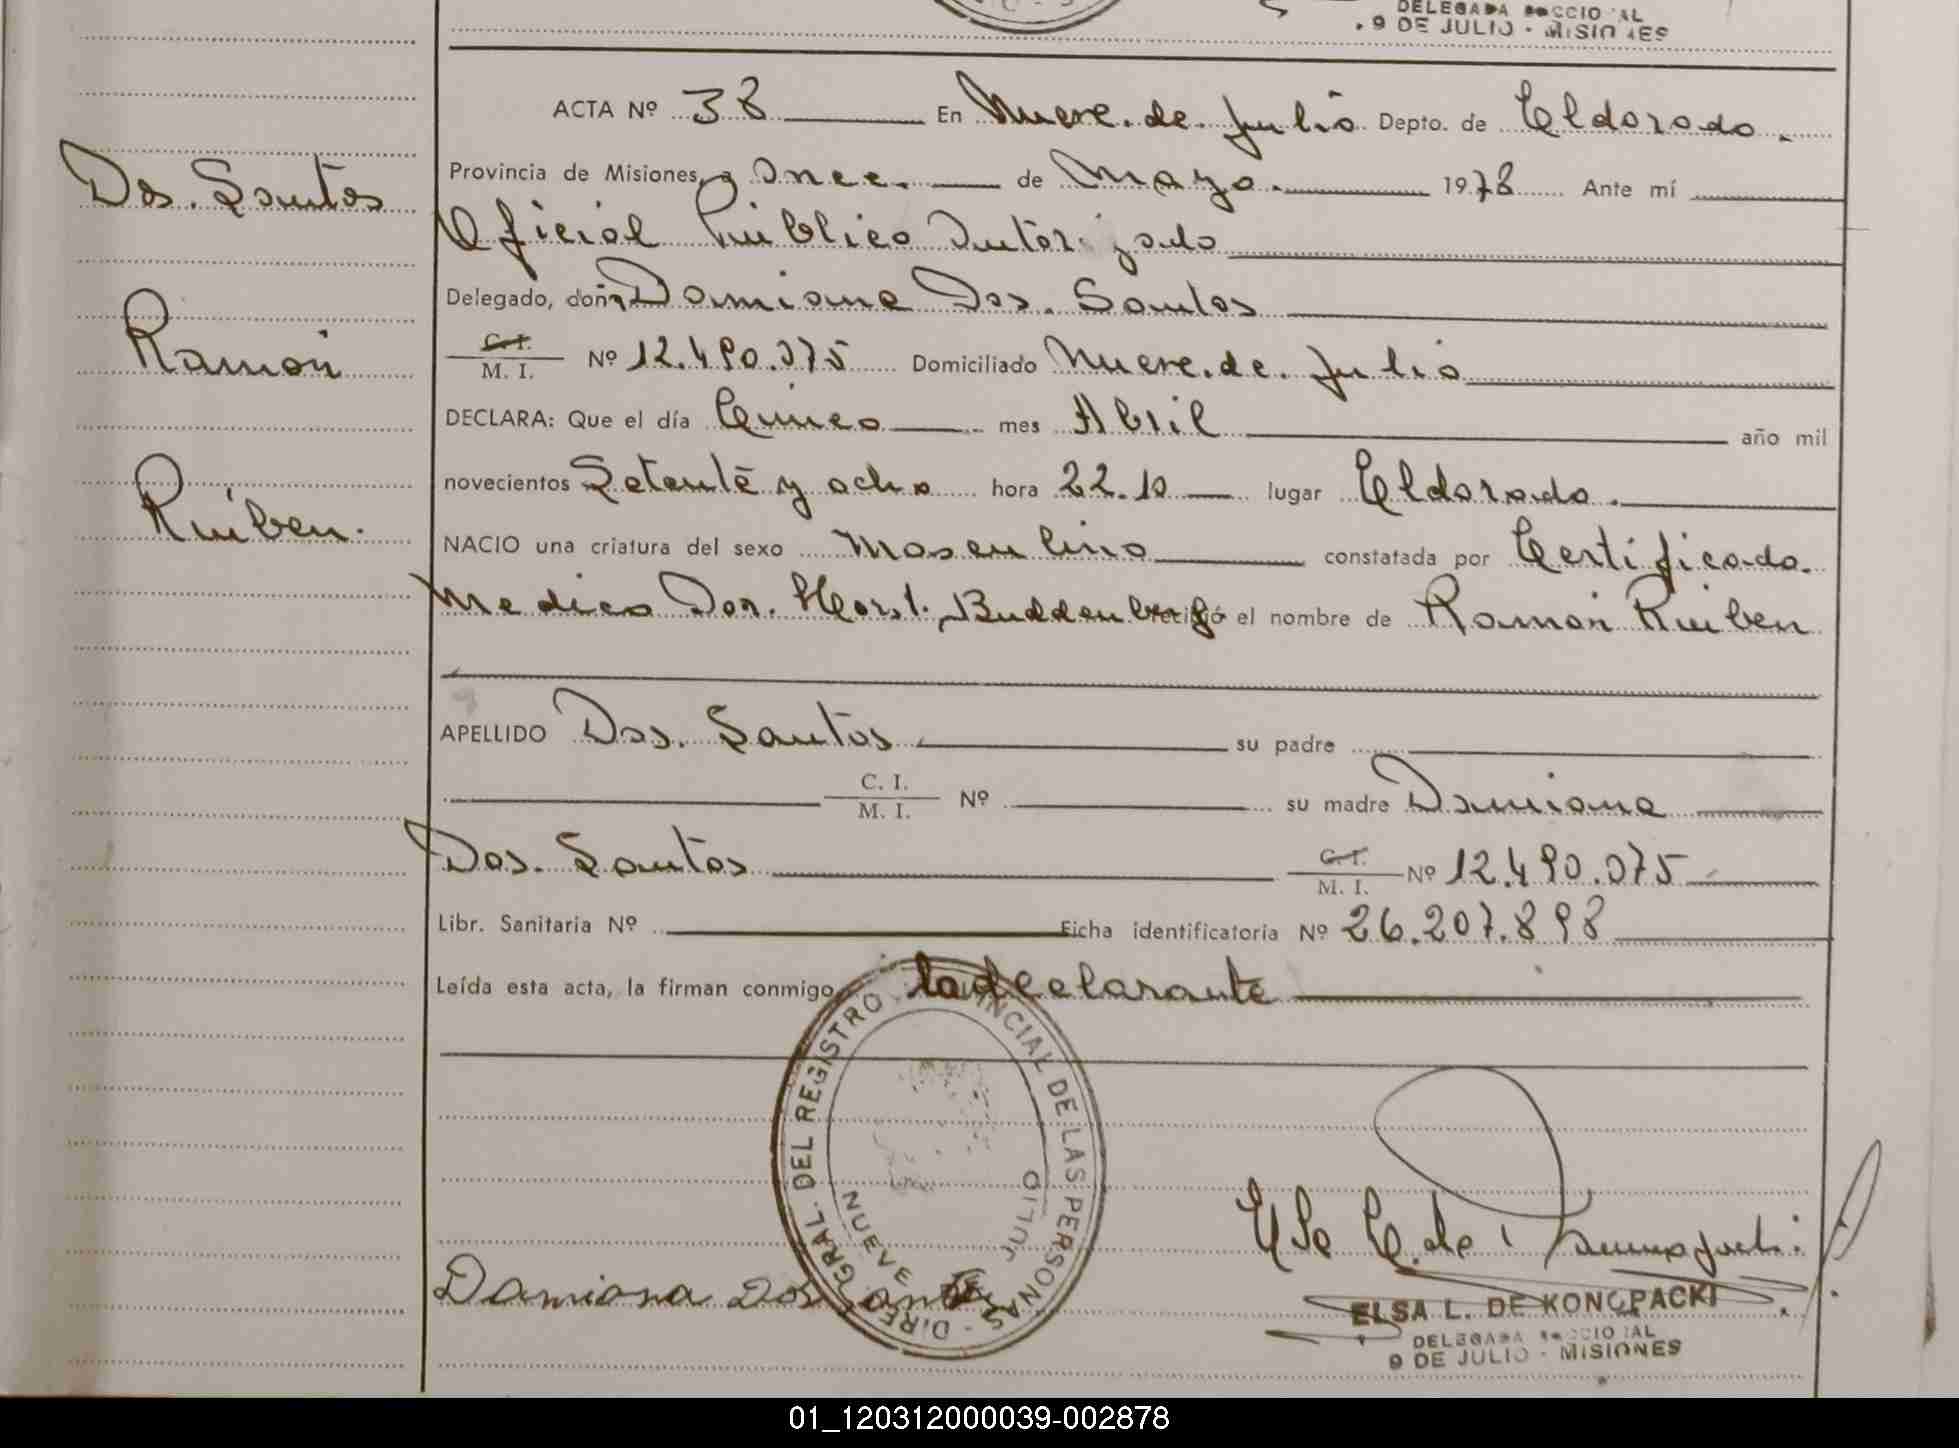 DELEGADA SECCIONAL
9 DE JULIO - MISIONES
ACTA Nº 38 En Nueve de Julio Depto. de Eldorado.
Provincia de Misiones, a Once. de Mayo. 1978 Ante mí
Oficial Público Autorizado
Delegado, doña Damiana Dos. Santos
C. I. / M. I. Nº 12.490.075 Domiciliado Nueve. de. Julio
DECLARA: Que el día Cinco mes Abril año mil
novecientos Setenta y ocho hora 22.10 lugar Eldorado.
NACIO una criatura del sexo Masculino constatada por Certificado.
Medico Dor. Horst. Buddenberg recibió el nombre de Ramón Rúben
APELLIDO Dos. Santos su padre
C. I. / M. I. Nº su madre Damiana
Dos. Santos C. I. / M. I. Nº 12.490.075
Libr. Sanitaria Nº Ficha identificatoria Nº 26.207.898
Leída esta acta, la firman conmigo la declarante
Dos. Santos
Ramón
Rúben.
DIREC. GRAL. DEL REGISTRO PROVINCIAL DE LAS PERSONAS
NUEVE JULIO
Damiana Dos Santos
ELSA L. DE KONOPACKI
DELEGADA SECCIONAL
9 DE JULIO - MISIONES
01_120312000039-002878